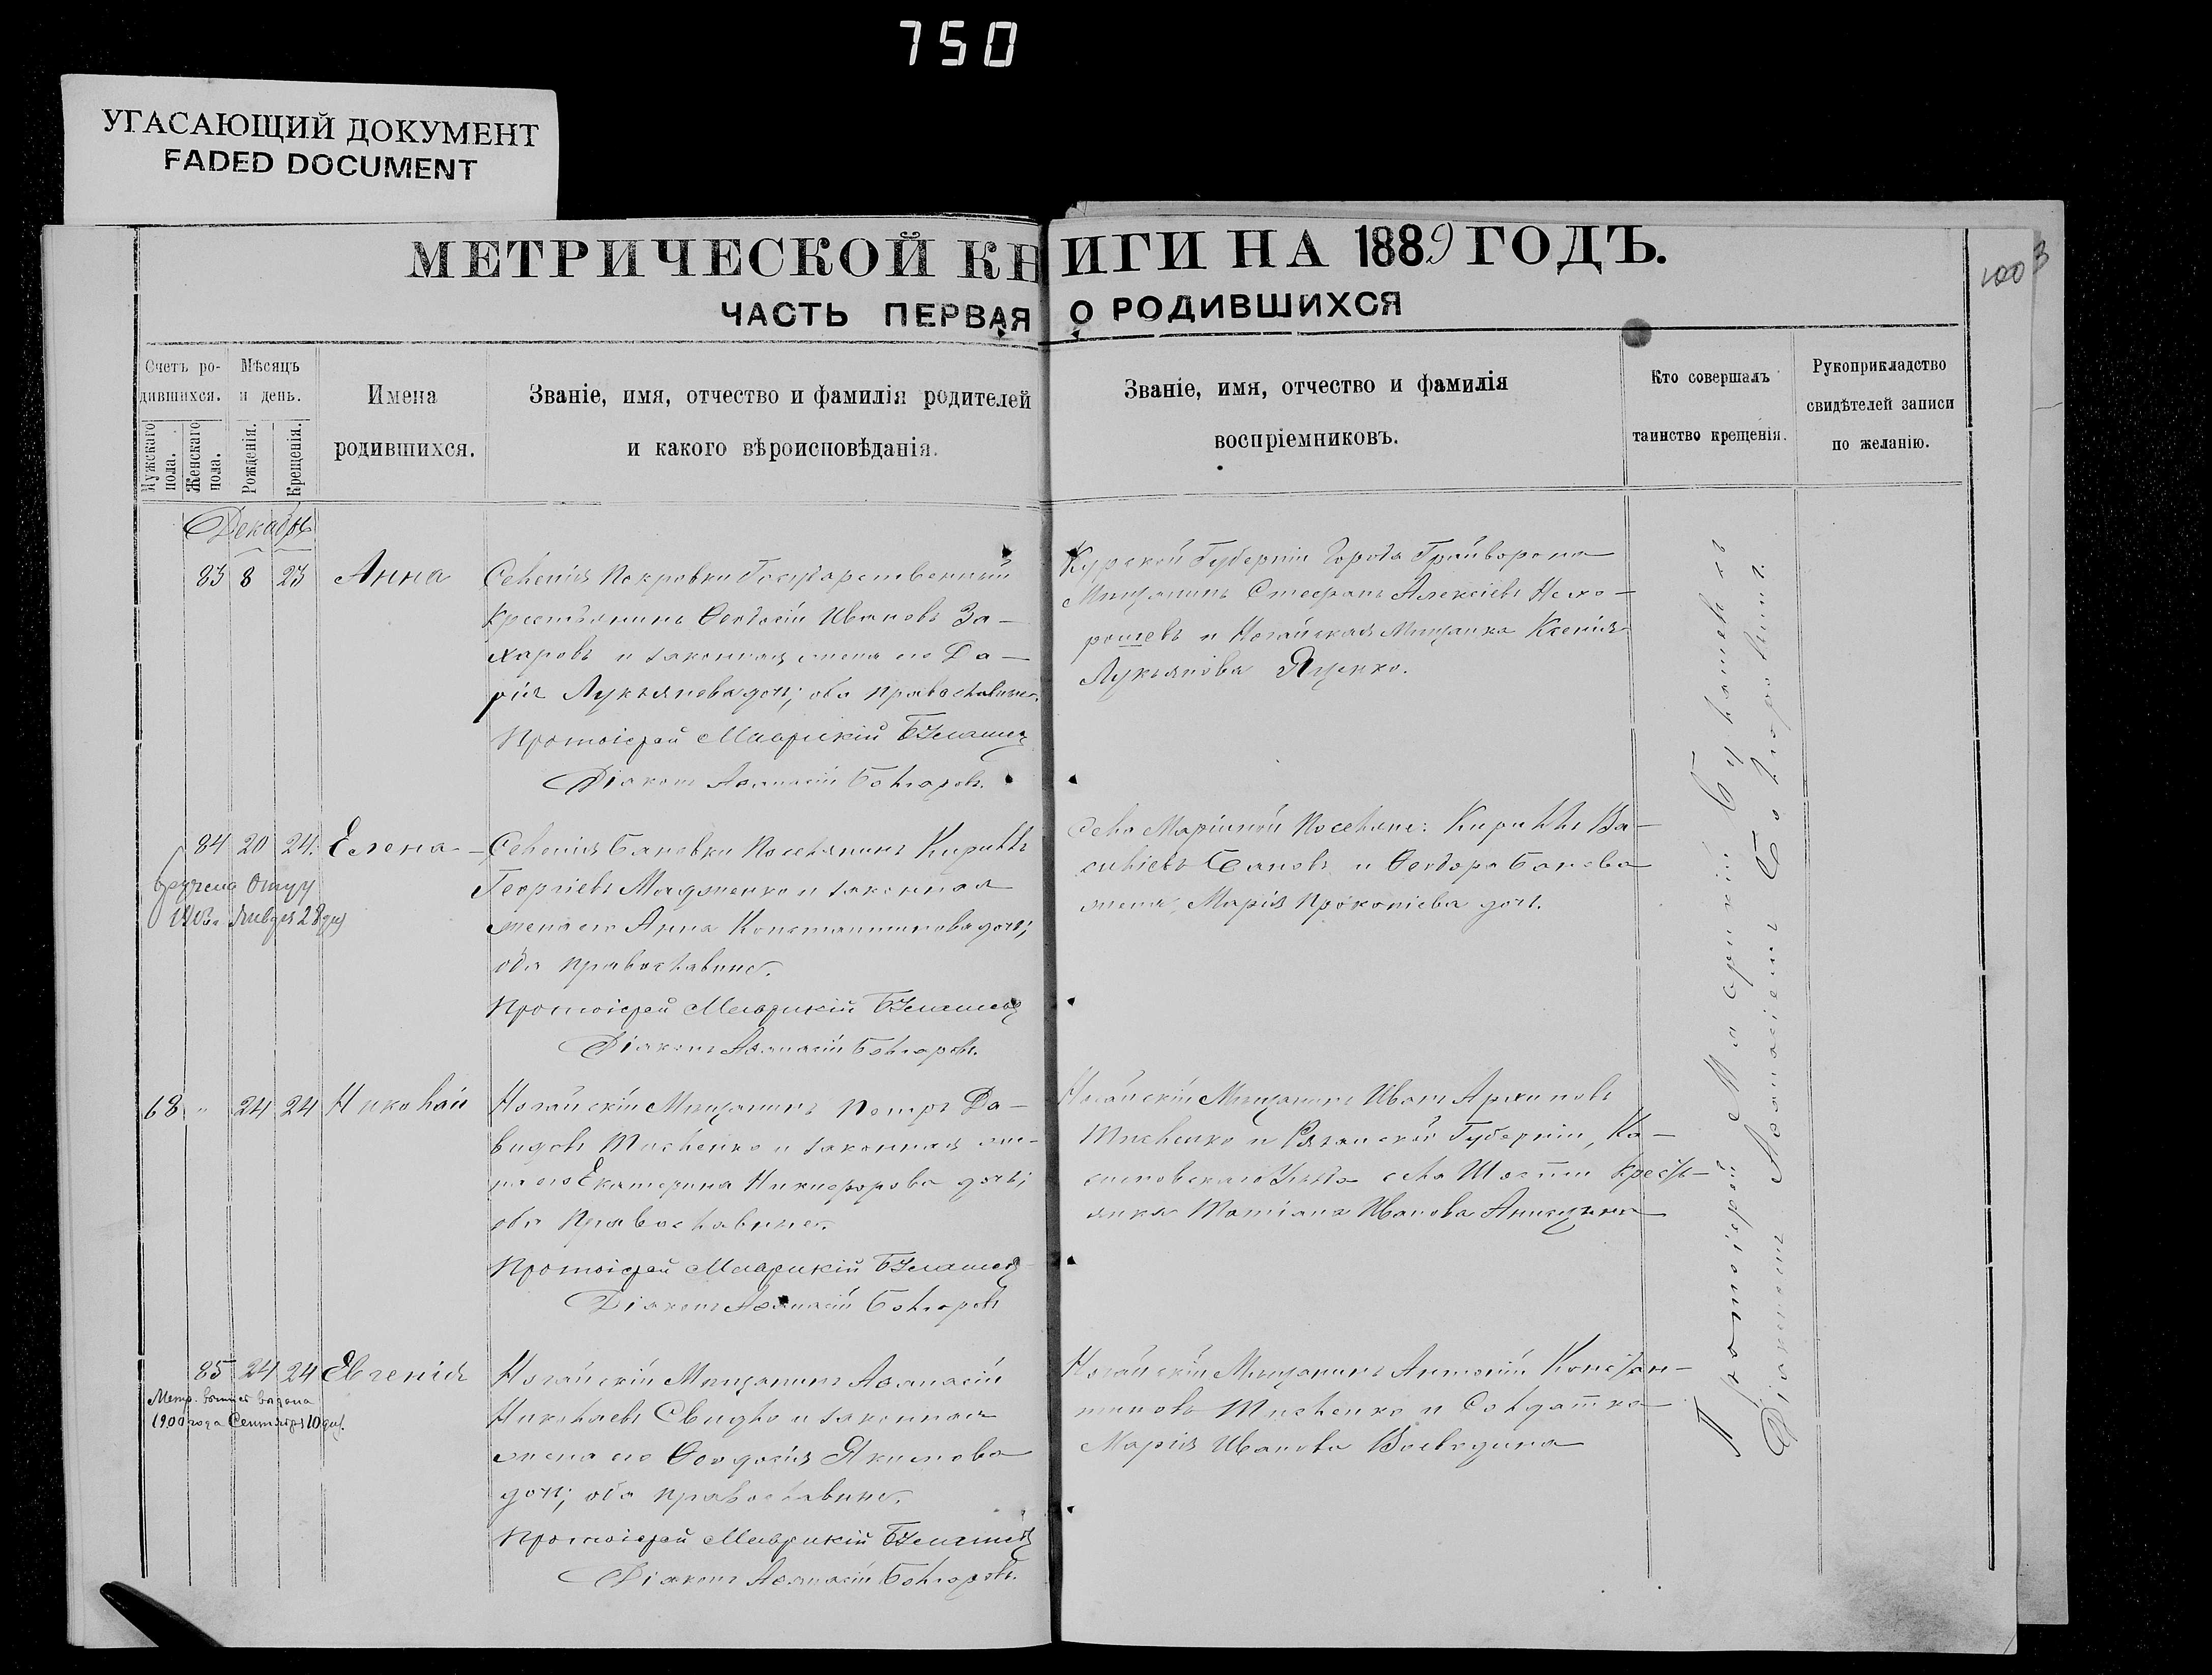 750
УГАСАЮЩИЙ ДОКУМЕНТ
FADED DOCUMENT
МЕТРИЧЕСКОЙ КНИГИ НА 1889 ГОДЪ.
1003
ЧАСТЬ ПЕРВАЯ О РОДИВШИХСЯ
Счетъ ро-
дившихся.
Мужскаго пола.
Женскаго пола.
Мѣсяцъ
и день.
Рожденія.
Крещенія.
Имена
родившихся.
Званіе, имя, отчество и фамилія родителей
и какого вѣроисповѣданія.
Званіе, имя, отчество и фамилія
воспріемниковъ.
Кто совершалъ
таинство крещенія.
Рукоприкладство
свидѣтелей записи
по желанію.
Декабрь
83 8 23 Анна
Селенія Покровки Государственный
Крестьянинъ Ѳеодосій Ивановъ За-
харовъ и законная жена его Да-
рія Лукьянова дочь; оба православные.
Протоіерей Маврикій
Діаконъ Аѳанасій Болгаровъ.
Курской Губерніи Города Грайворона
Мѣщанинъ Стефанъ Алексіевъ Нехо-
рошевъ и Ногайская Мѣщанка Ксенія
Лукьянова Яценко.
84 20 24. Елена
вручена Отцу
Января 28 дня
Селенія Бановки Поселянинъ Кириллъ
Георгіевъ Мадженко и законная
жена его Анна Константинова дочь;
оба православные.
Протоіерей Маврикій
Діаконъ Аѳанасій Болгаровъ.
Села Маріиной Поселяне: Кириллъ Ва-
силіевъ Бановъ и Ѳеодора Банова
жена, Марія Прокопіева дочь.
68 " 24 24 Николай
Ногайскій Мѣщанинъ Петръ Да-
видовъ Тисленко и законная же-
на его Екатерина Никифорова дочь;
оба Православные.
Протоіерей Маврикій
Діаконъ Аѳанасій Болгаровъ
Ногайскій Мѣщанинъ Иванъ Архиповъ
Тисленко и Рязанской Губерніи, Ка-
симовскаго Уѣзда села Шостьи Кресть-
янка Татіана Иванова
85 24 24 Евгенія
Метр. выпись выдана
1900 года Сентября 10 дня.
Ногайскій Мѣщанинъ Аѳанасій
Николаевъ Свидло и законная
жена его Ѳеодосія Якимова
дочь; оба православные.
Протоіерей Маврикій
Діаконъ Аѳанасій Болгаровъ.
Ногайскій Мѣщанинъ Антоній Констан-
тиновъ Тисленко и Солдатка
Марія Иванова Воеводина
Протоіерей Маврикій
Діаконъ Аѳанасій Болгаровъ.